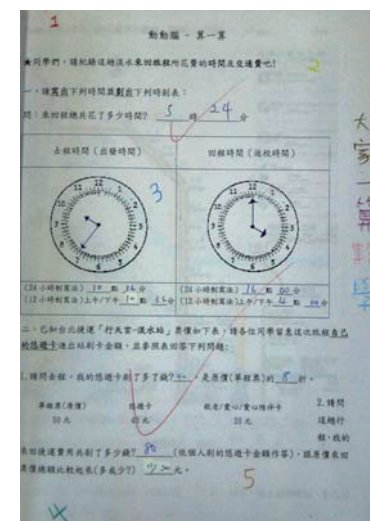 1
動動腦 - 算一算
★同學們，請紀錄這趟淡水來回旅程所花費的時間及交通費吧!
2
一、請寫出下列時間並劃出下列時刻表:
問:來回程總共花了多少時間? 5 時 24 分
去程時間(出發時間) 回程時間(返校時間)
3
(24小時制寫法) 10 點 36 分 (24小時制寫法) 16 點 00 分
(12小時制寫法)上午/下午 10 點 36 分 (12小時制寫法)上午/下午 4 點 00 分
二、已知台北捷運「行天宮-淡水站」票價如下表,請各位同學留意這次旅程自己
的悠遊卡進出站刷卡金額,並參照表回答下列問題:
1.請問去程,我的悠遊卡刷了多了錢? 是原價(單程票)的 8 折。
單程票(原價) 悠遊卡 敬老/愛心/愛心陪伴卡
50元 40元 20元
2.請問
這趟行
程,我的
來回捷運費用共刷了多少錢? 80 (依個人刷的悠遊卡金額作答),跟原價來回
票價總額比較起來(多或少?) 少20元。
4
5
大家一算